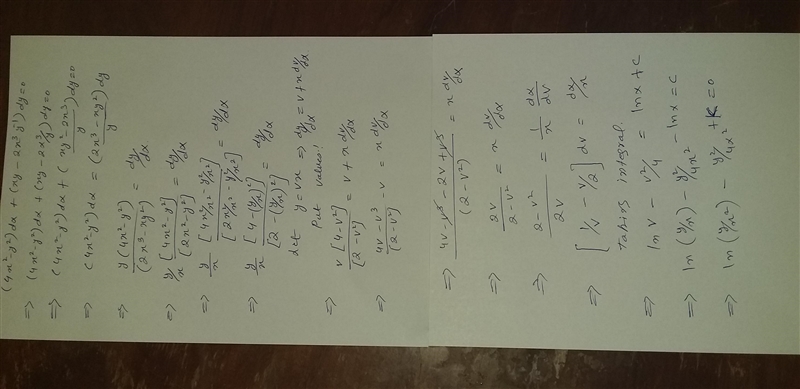 (4x²-y²)dx + (xy - 2x³y⁻¹)dy=0
⇒ (4x²-y²)dx + (xy - 2x³/y)dy=0
⇒ (4x²-y²)dx + (xy² - 2x³ / y)dy=0
⇒ (4x²-y²)dx = (2x³ - xy² / y)dy
⇒ y(4x²-y²) / (2x³-xy²) = dy/dx
⇒ y/x [4x²-y²] / [2x²-y²] = dy/dx
⇒ y/x [4x²/x² - y²/x²] / [2x²/x² - y²/x²] = dy/dx
⇒ y/x [4-(y/x)²] / [2-(y/x)²] = dy/dx
Let y = vx ⇒ dy/dx = v + x dv/dx
Put values!
⇒ v[4-v²] / [2-v²] = v + x dv/dx
⇒ 4v-v³ / (2-v²) - v = x dv/dx
⇒ 4v - v³ - 2v + v³ / (2-v²) = x dv/dx
⇒ 2v / 2-v² = x dv/dx
⇒ 2-v² / 2v = 1/x dx/dv
⇒ [1/v - v/2] dv = dx/x
Taking integral.
⇒ ln v - v²/4 = ln x + C
⇒ ln(y/x) - y²/4x² - ln x = C
⇒ ln(y/x²) - y²/4x² + K = 0